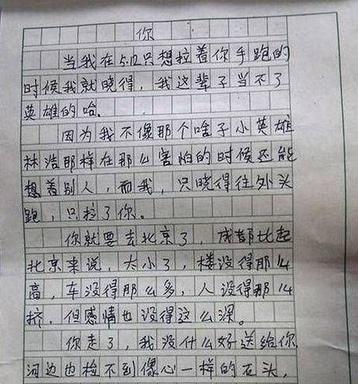 你
当我在5.12只想拉着你手跑的
时候我就晓得，我这辈子当不了
英雄的哈。
因为我不像那个啥子小英雄
林浩那样在那么害怕的时候还能
想着别人，而我，只晓得往外头
跑，只拉了你。
你就要去北京了，成都比起
北京来说，太小了，楼没得那么
高，车没得那么多，人没得那么
挤，但感情也没得这么深。
你走了，我没什么好送给你
河边也捡不到像心一样的石头，